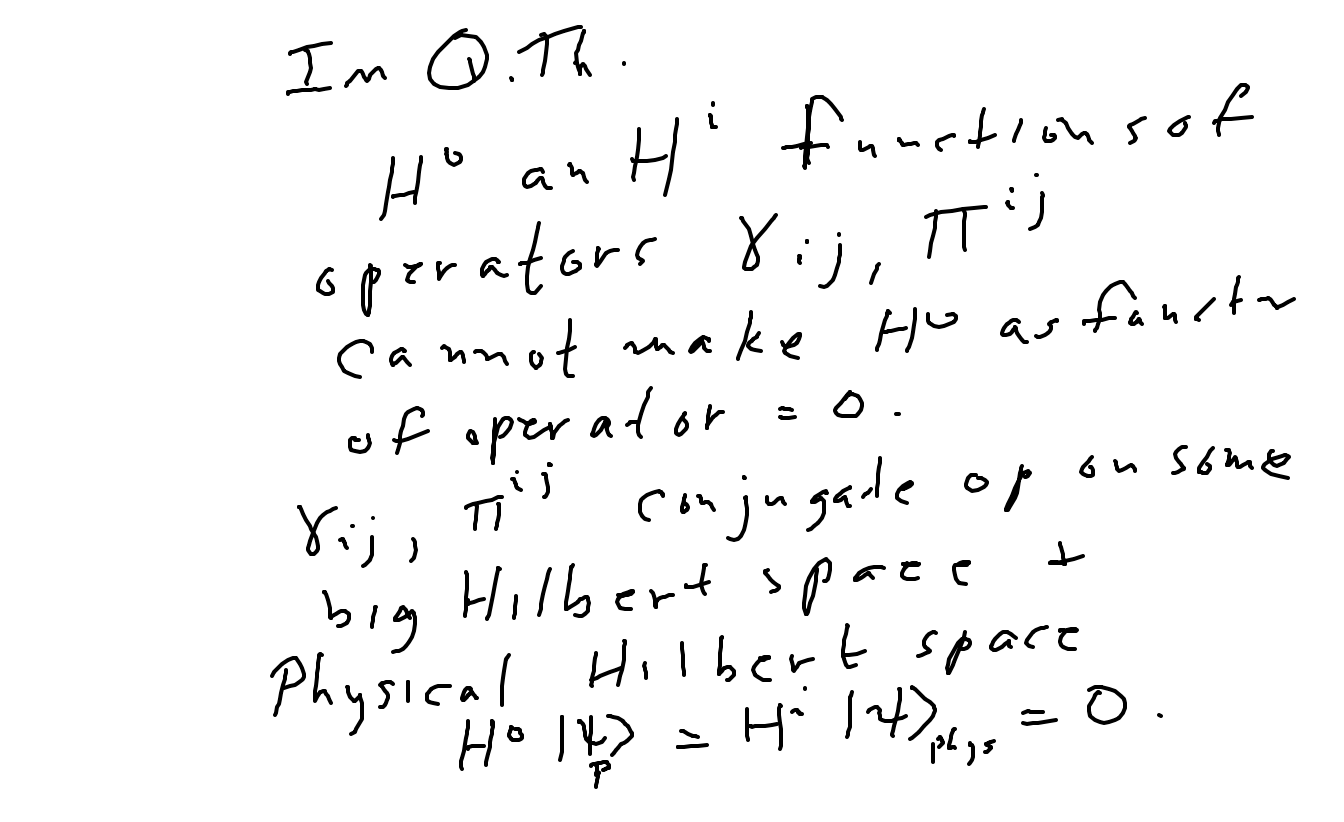 In Q.Th.
H⁰ an Hⁱ functions of
operators γᵢⱼ, πⁱʲ
cannot make H⁰ as functn
of operator = 0.
γᵢⱼ, πⁱʲ conjugate op on some
big Hilbert space +
Physical Hilbert space
H⁰ |ψ⟩ₚ = Hⁱ |ψ⟩ₚₕyₛ = 0.